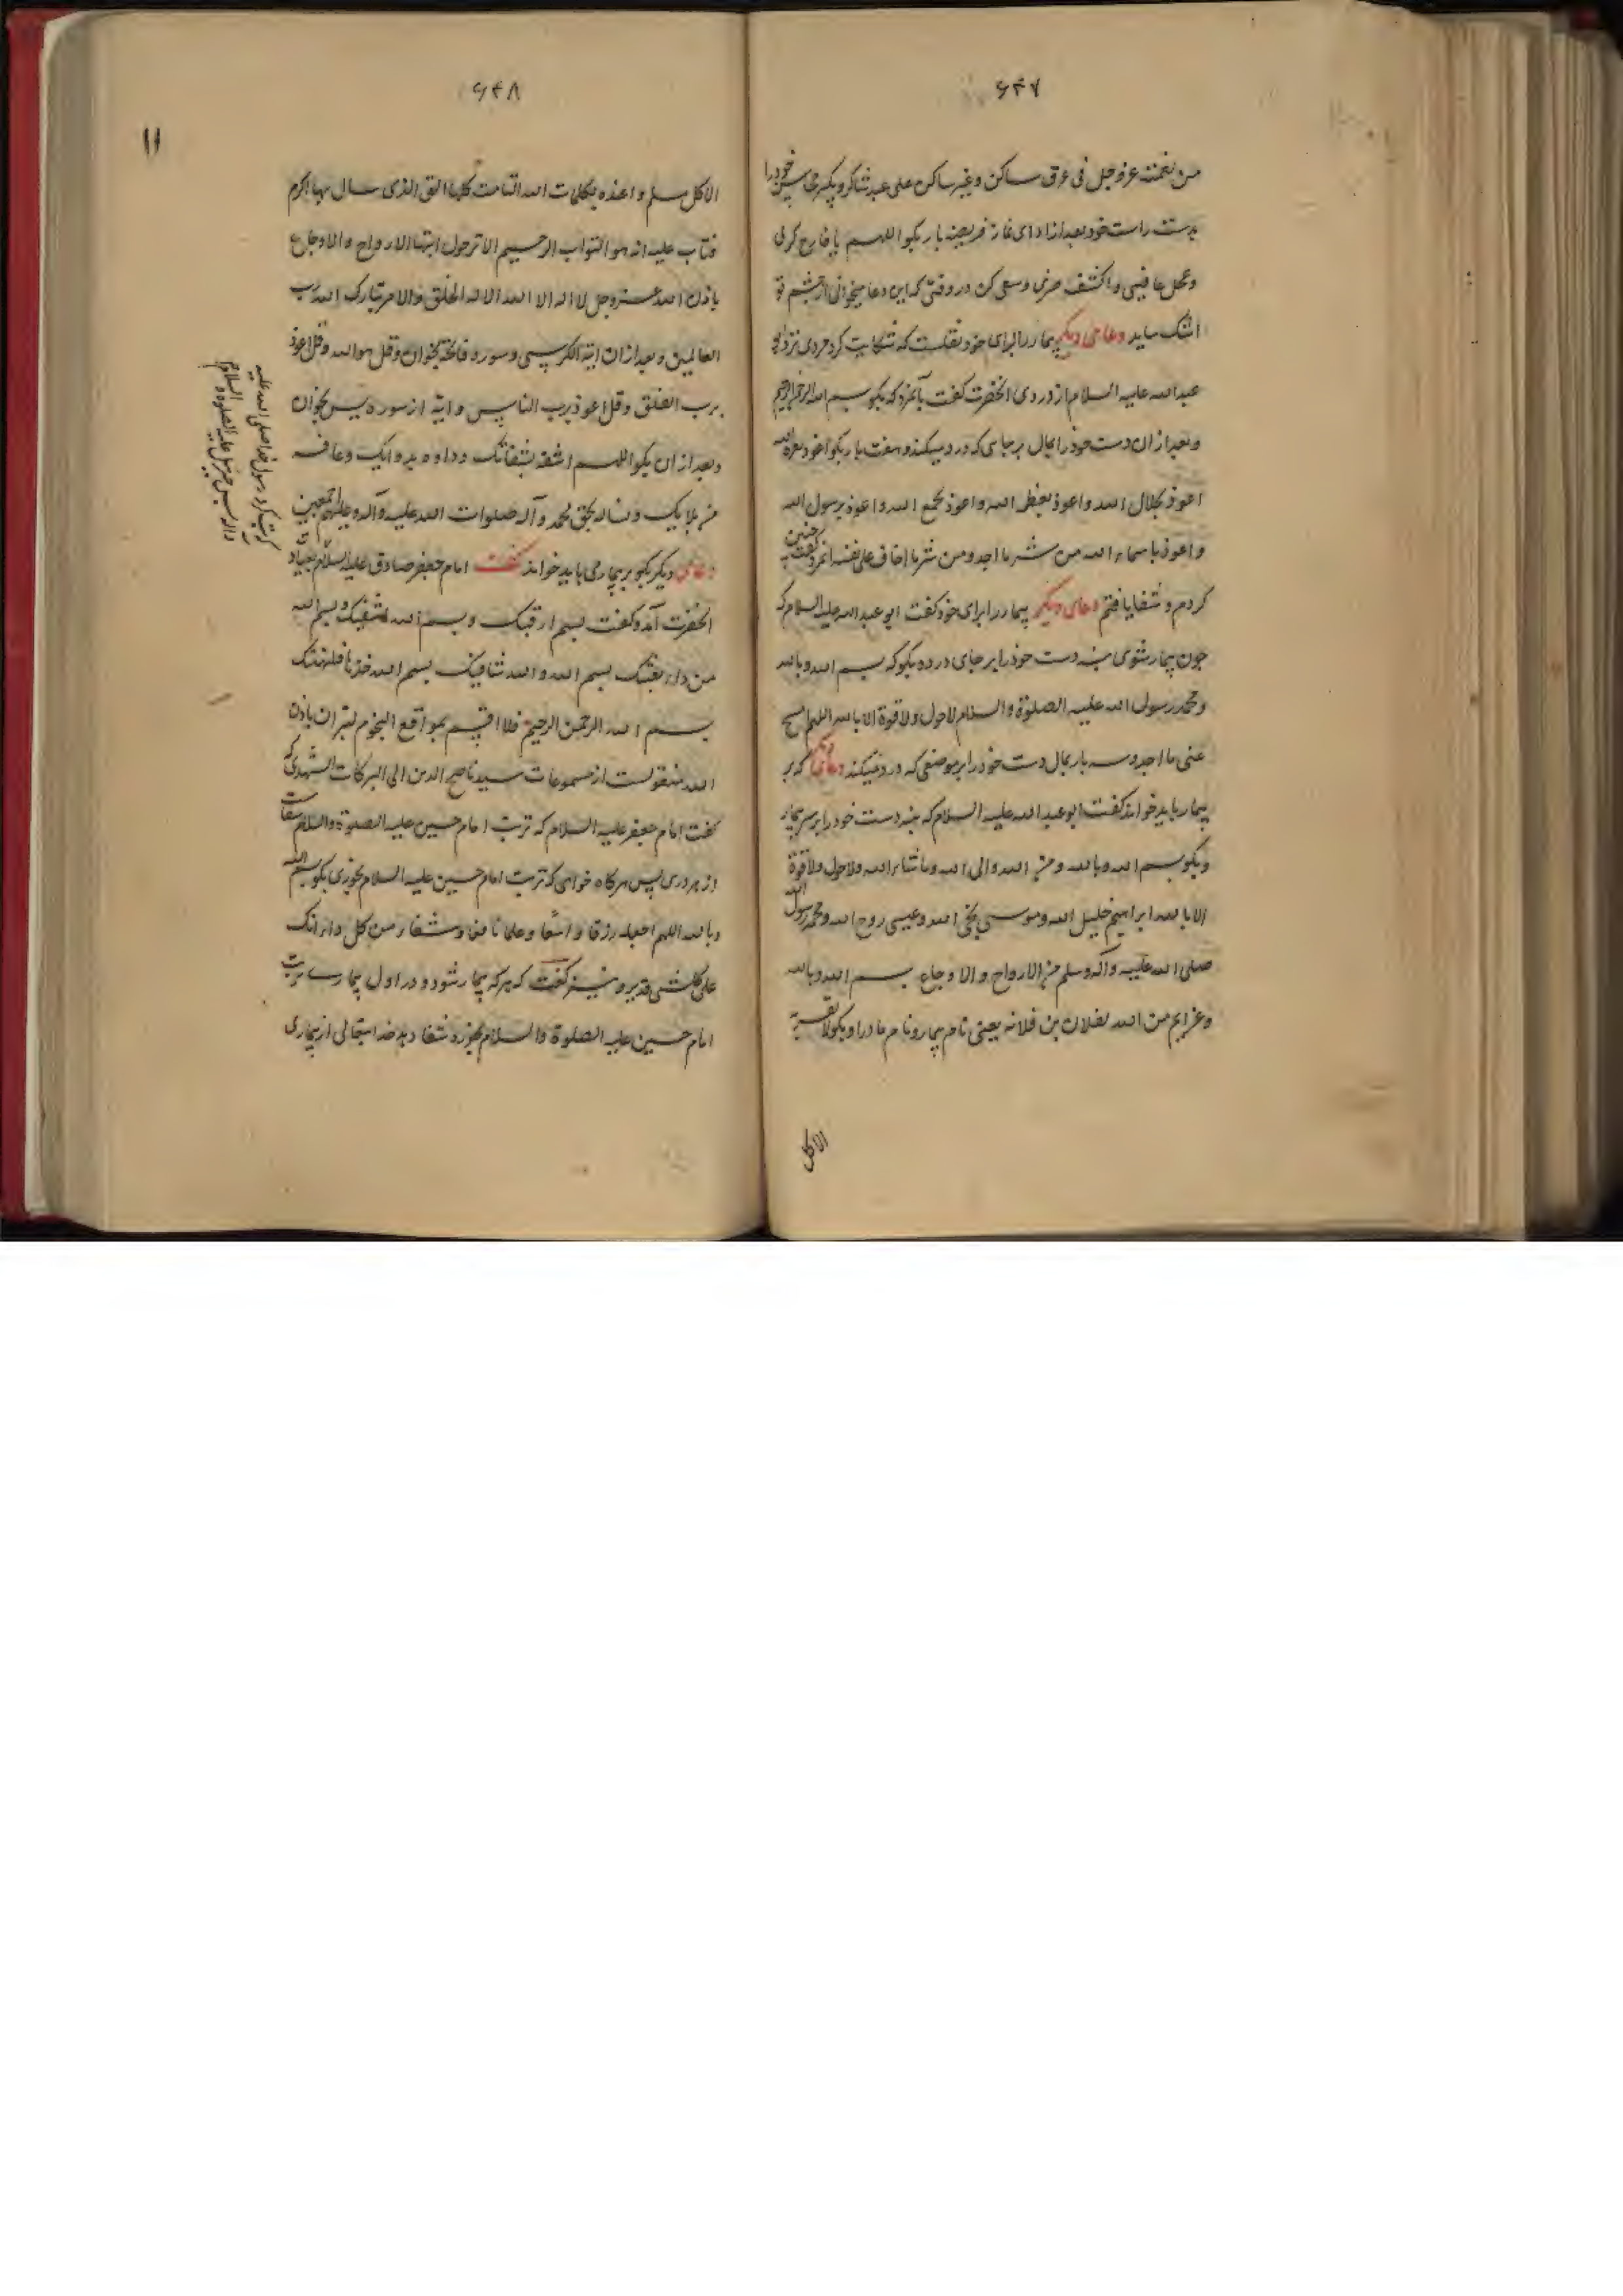 ۶۴۷
من نعمته عز و جل فی عرق ساکن و غیر ساکن علی عبد شاکر و بگیر محاسن خود را
بدست راست خود بعد از ادای نماز فریضه بار بگو اللهم یا فارج کربی
و عجل عافیتی و اکشف ضری و سعی کن در وقتی که این دعا میخوانی از چشم تو
اشک بیاید دعای دیگر بیمار را برای خود نقلست که شکایت کرد مردی نزد ابی
عبد الله علیه السلام از دردی الحضرت گفت بآنمرد که بگو بسم الله الرحمن الرحیم
و بعد از ان دست خود را بمال بر جای که درد میکند و هفت بار بگو اعوذ بعزه الله
اعوذ بجلال الله و اعوذ بعظمه الله و اعوذ بجمع الله و اعوذ برسول الله
و اعوذ باسماء الله من شر ما اجد و من شر ما اخاف علی نفسی انمرد گفت چنین
کردم و شفا یافتم دعای دیگر بیمار را برای خود گفت ابو عبد الله علیه السلام که
چون بیمار شوی بنه دست خود را بر جای درد و بگو که بسم الله و بالله
و محمد رسول الله علیه الصلوة و السلام لا حول و لا قوة الا بالله اللهم امسح
عنی ما اجد و سه بار بمال دست خود را بر موضعی که درد میکند دعای که بر
بیمار باید خواند گفت ابو عبد الله علیه السلام که بنه دست خود را بر سر بیمار
و بگو بسم الله و بالله و من الله و الی الله و ما شاء الله و لا حول و لا قوة
الا بالله ابراهیم خلیل الله و موسی نجی الله و عیسی روح الله و محمد رسول الله
صلی الله علیه و آله و سلم من الارواح و الاوجاع بسم الله و بالله
و عزایم من الله لفلان بن فلانه یعنی نام بیمار و نام مادر او بگو لا تقربه
الا کل
۶۴۸
۱۱
الا کل مسلم و اعذه بکلمات الله التامات کلها التی الذی سال بها آدم
فتاب علیه انه هو التواب الرحیم الا ترحول ایتها الارواح و الاوجاع
باذن الله عز و جل لا اله الا الله الا له الخلق و الامر تبارک الله رب
العالمین و بعد از ان ایة الکرسی و سوره فاتحه بخوان و قل هو الله و قل اعوذ
برب الفلق و قل اعوذ برب الناس و ایه از سوره یس بخوان
و بعد از ان بگو اللهم اشفه بشفائک و داوه بدوائک و عافه
من بلائک و نساله بحق محمد و آله صلوات الله علیه و آله و علیهم اجمعین
دعای دیگر بگو بر بیماری باید خواند گفت امام جعفر صادق علیه السلام بعیاد
الحضرت آمد و گفت بسم ارقیک و بسم الله اشفیک و بسم الله
من داء یعنیک بسم الله و الله شافیک بسم الله خذها فلتهنئک
بسم الله الرحمن الرحیم فلا اقسم بمواقع النجوم لتبران باذن
الله منقولست از مسموعات سید ناصر الدین ابی البرکات المشهدی که
گفت امام جعفر علیه السلام که تربت امام حسین علیه الصلوة و السلام شفاست
از هر دردی پس هرگاه خواهی که تربت امام حسین علیه السلام بخوری بگو بسم الله
و بالله اللهم اجعله رزقا واسعا و علما نافعا و شفاء من کل داء انک
علی کل شی قدیر و نیز گفت که هر که بیمار شود و در اول بیماری تربت
امام حسین علیه الصلوة و السلام بخورد شفا دهد خدا تعالی از بیماری
کرد رسول خدا صلی الله علیه
السلام
جبرئیل علیه الصلوة و